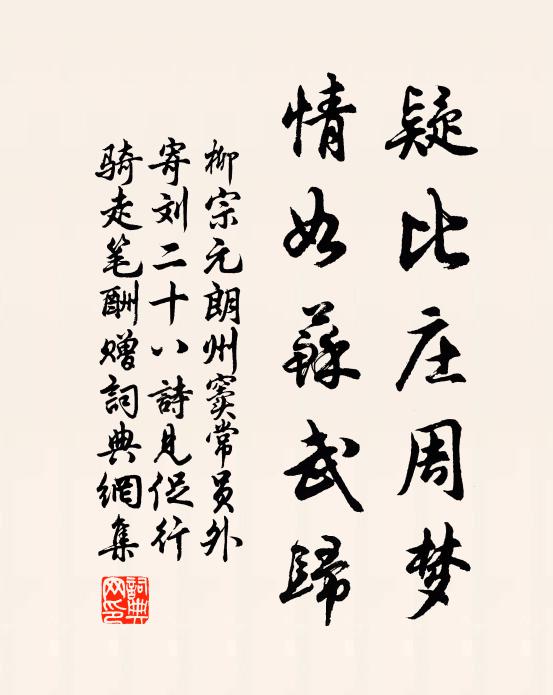 疑比庄周梦
情如蘇武歸
柳宗元朗州窦常员外
寄刘二十八詩見促行
骑走笔酬赠詞典網集
詞典網印